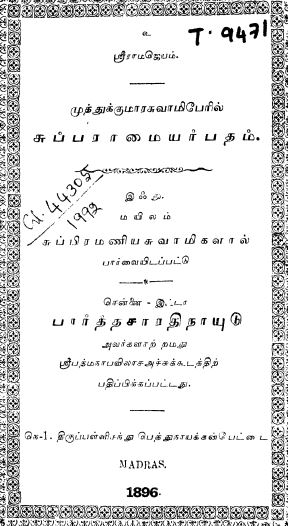 உ
T. 9471
ஸ்ரீராமஜெயம்.
முத்துக்குமாரசுவாமிபேரில்
சுப்பராமையர்பதம்.
இஃது
மயிலம்
சுப்பிரமணியசுவாமிகளால்
பார்வையிடப்பட்டு
Cd. 44305
1992
சென்னை - இட்டா
பார்த்தசாரதிநாயுடு
அவர்களாற் றமது
ஸ்ரீபத்மநாபவிலாசஅச்சுக்கூடத்திற்
பதிப்பிக்கப்பட்டது.
கெ-1. திருப்பள்ளிசந்து பெத்துநாயக்கன்பேட்டை
MADRAS.
1896.